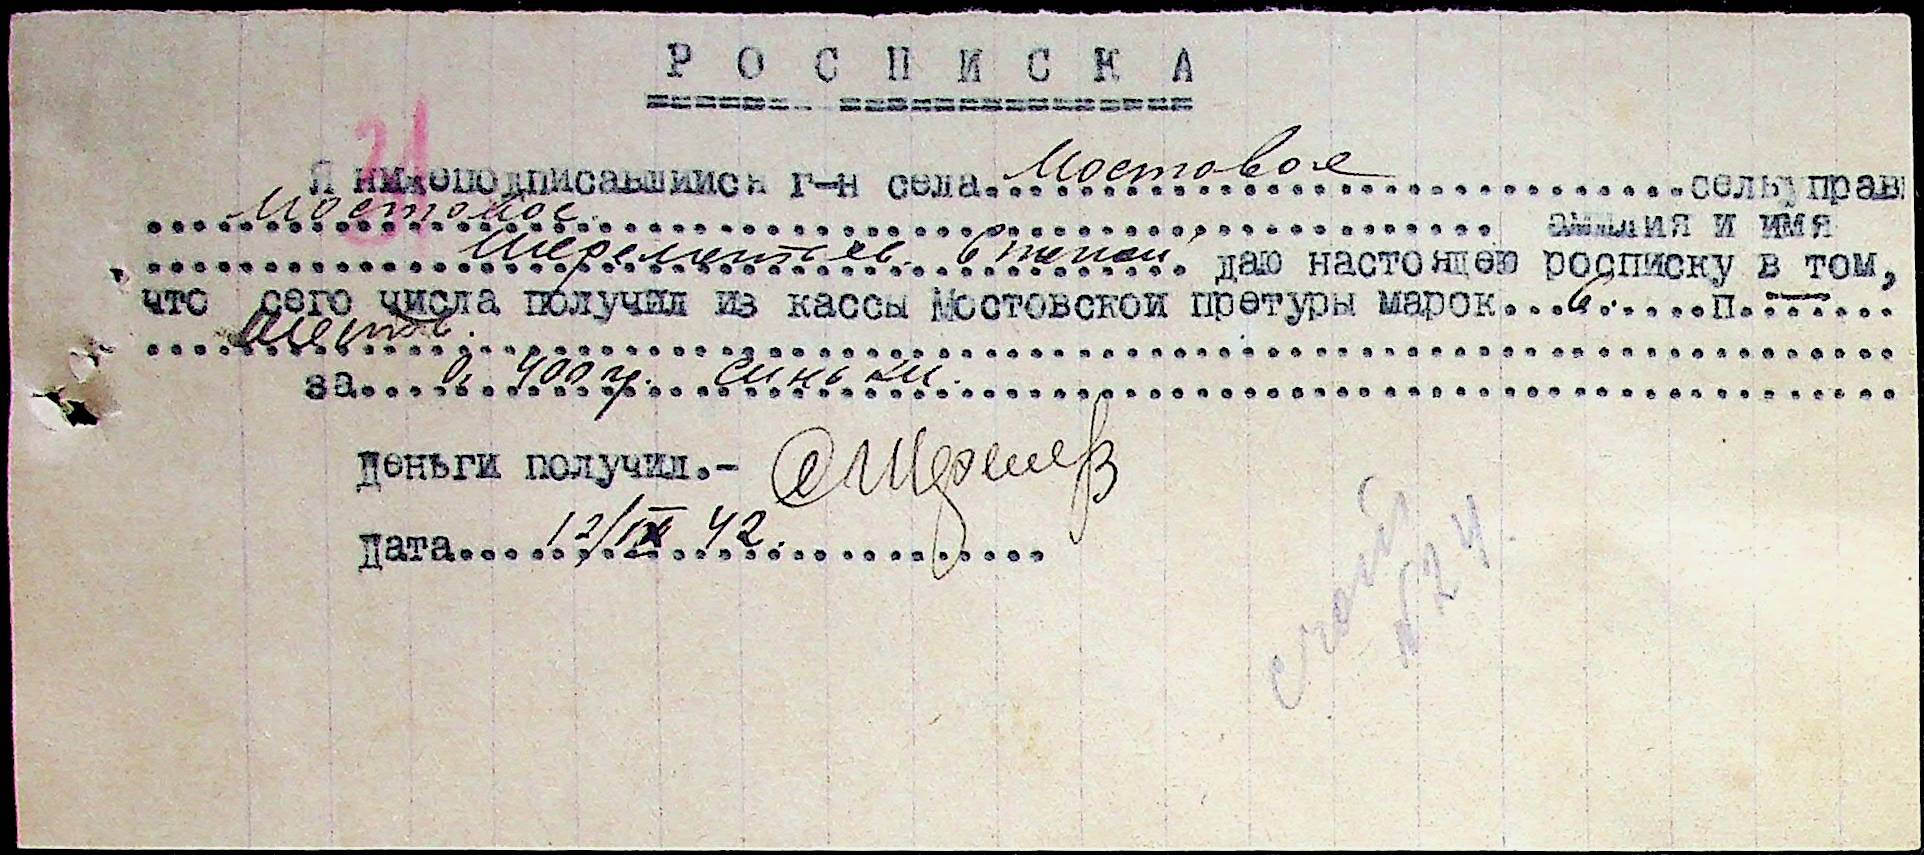 РОСПИСКА
31
Я нижеподписавшийся г-н села...Мостовое...сельуправ
...Мостовое.... амилия и имя
...Шереметьев. Степан... даю настоящею росписку в том,
что сего числа получил из кассы Мостовской претуры марок...6....п.—...
...Шесть....
за...0,400 гр. синьки....
Деньги получил.-
Дата...12/IX 42....
счет
№ 24.